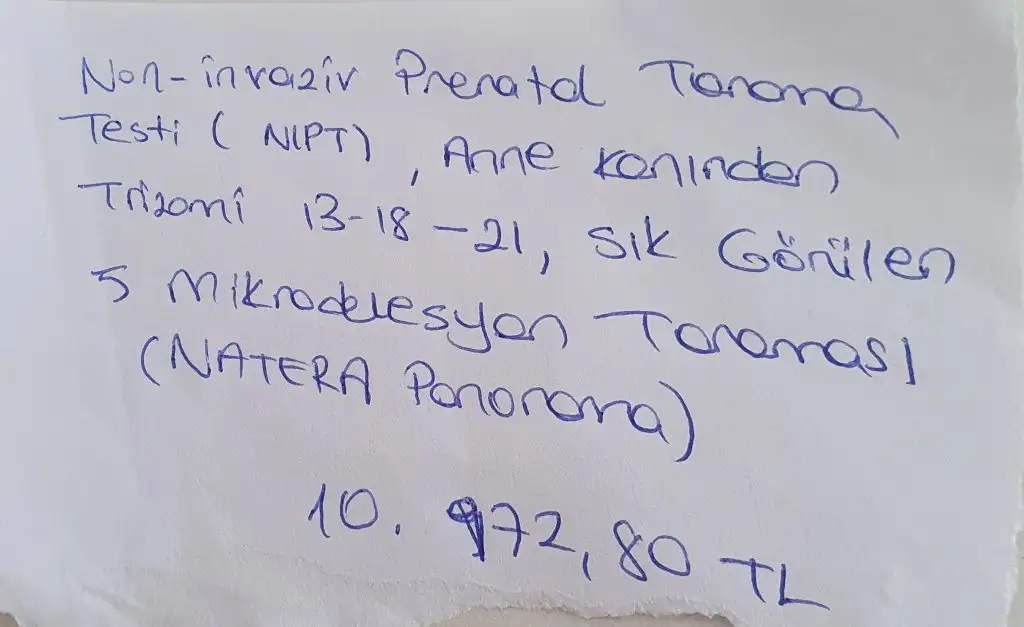 Non-invaziv Prenatal Tarama
Testi (NIPT), Anne kanından
Trizomi 13-18-21, sık Görülen
5 Mikrodelesyon Taraması
(NATERA Panorama)
10.972,80 TL